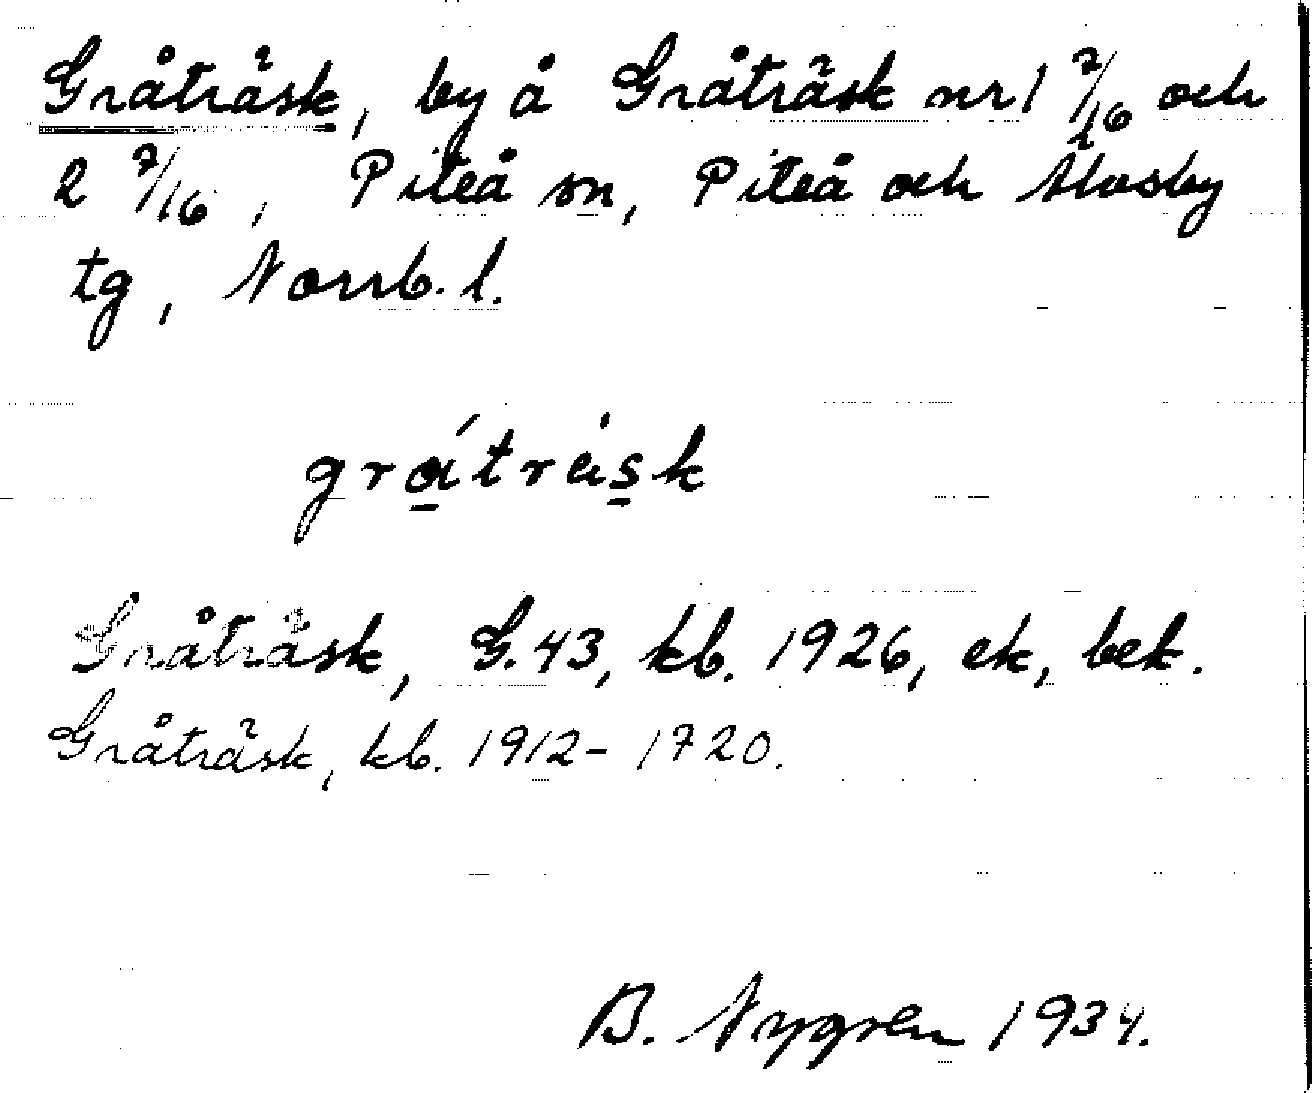 Gråträsk, by å Gråträsk nr 1 7/16 och
2 7/16, Piteå sn, Piteå och Älvsby
tg, Norrb. l.
gråträsk
Gråträsk, G. 43, kb. 1926, ek, bek.
Gråträsk, kb. 1912-1720.
B. Nygren 1934.